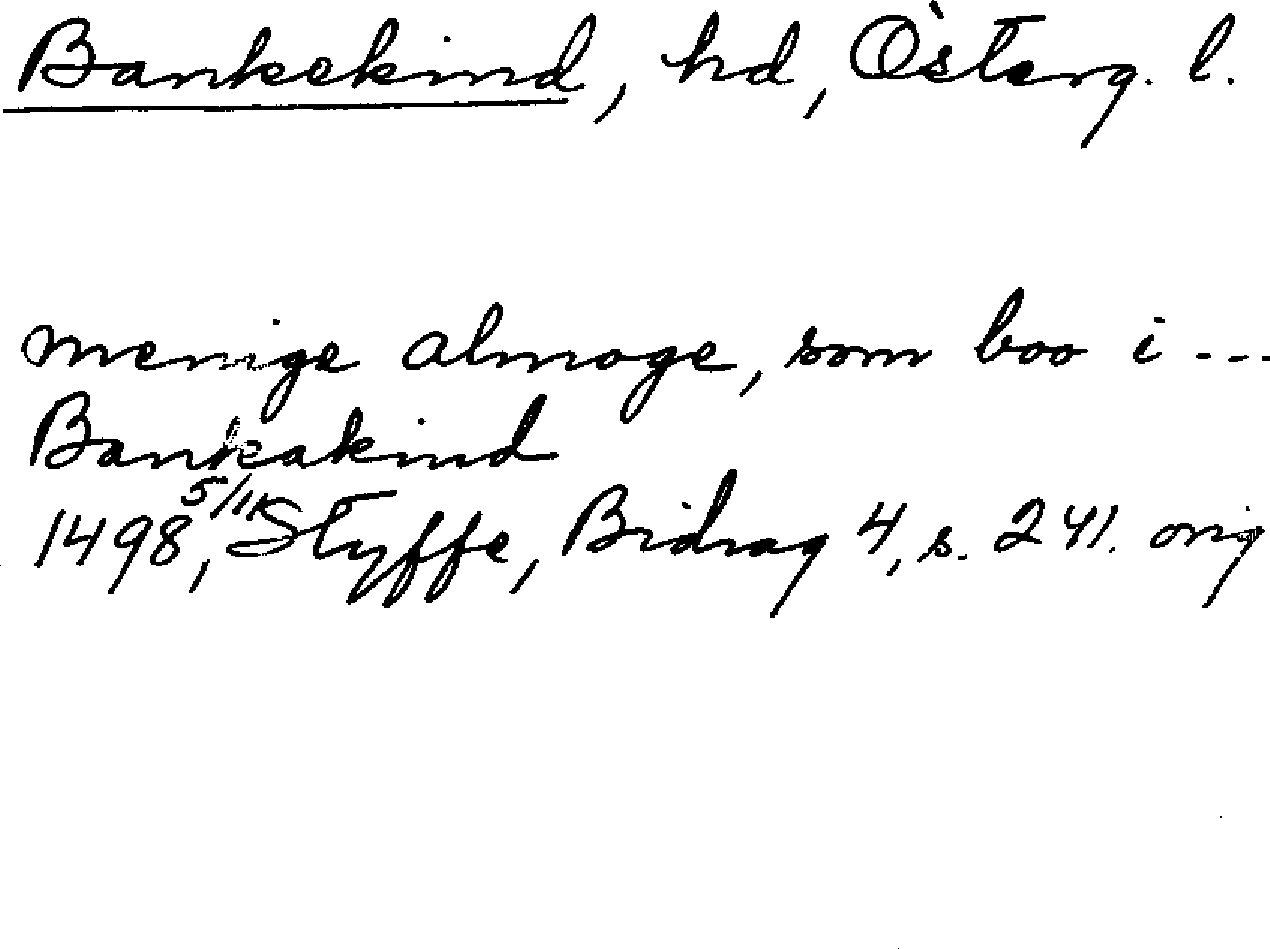 Bankekind, hd, Österg. l.
menige almoge, som boo i ---
Bankakind
1498 5/11, Styffe, Bidrag 4, s. 241. orig